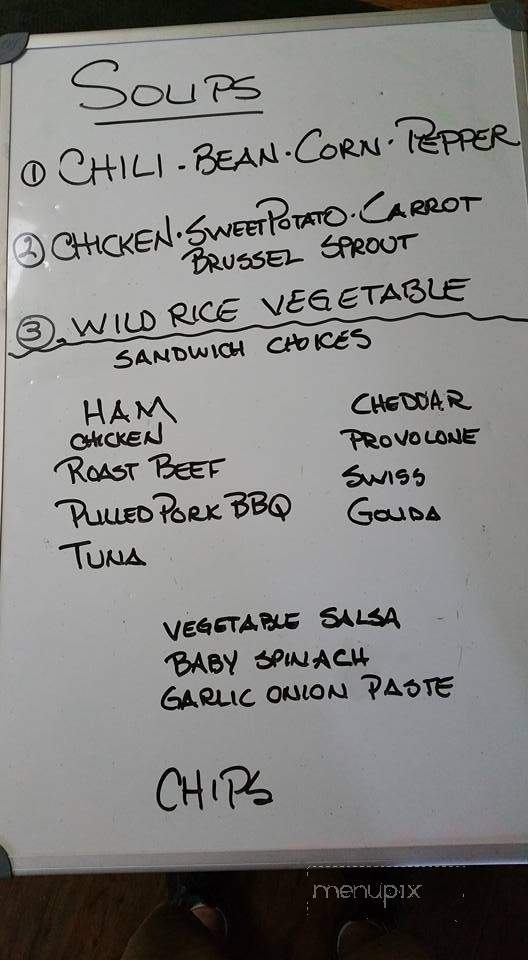 SOUPS
① CHILI · BEAN · CORN · PEPPER
② CHICKEN · SWEET POTATO · CARROT
BRUSSEL SPROUT
③. WILD RICE VEGETABLE
SANDWICH CHOICES
HAM CHEDDAR
CHICKEN PROVOLONE
ROAST BEEF SWISS
PULLED PORK BBQ GOUDA
TUNA
VEGETABLE SALSA
BABY SPINACH
GARLIC ONION PASTE
CHIPS
menupix